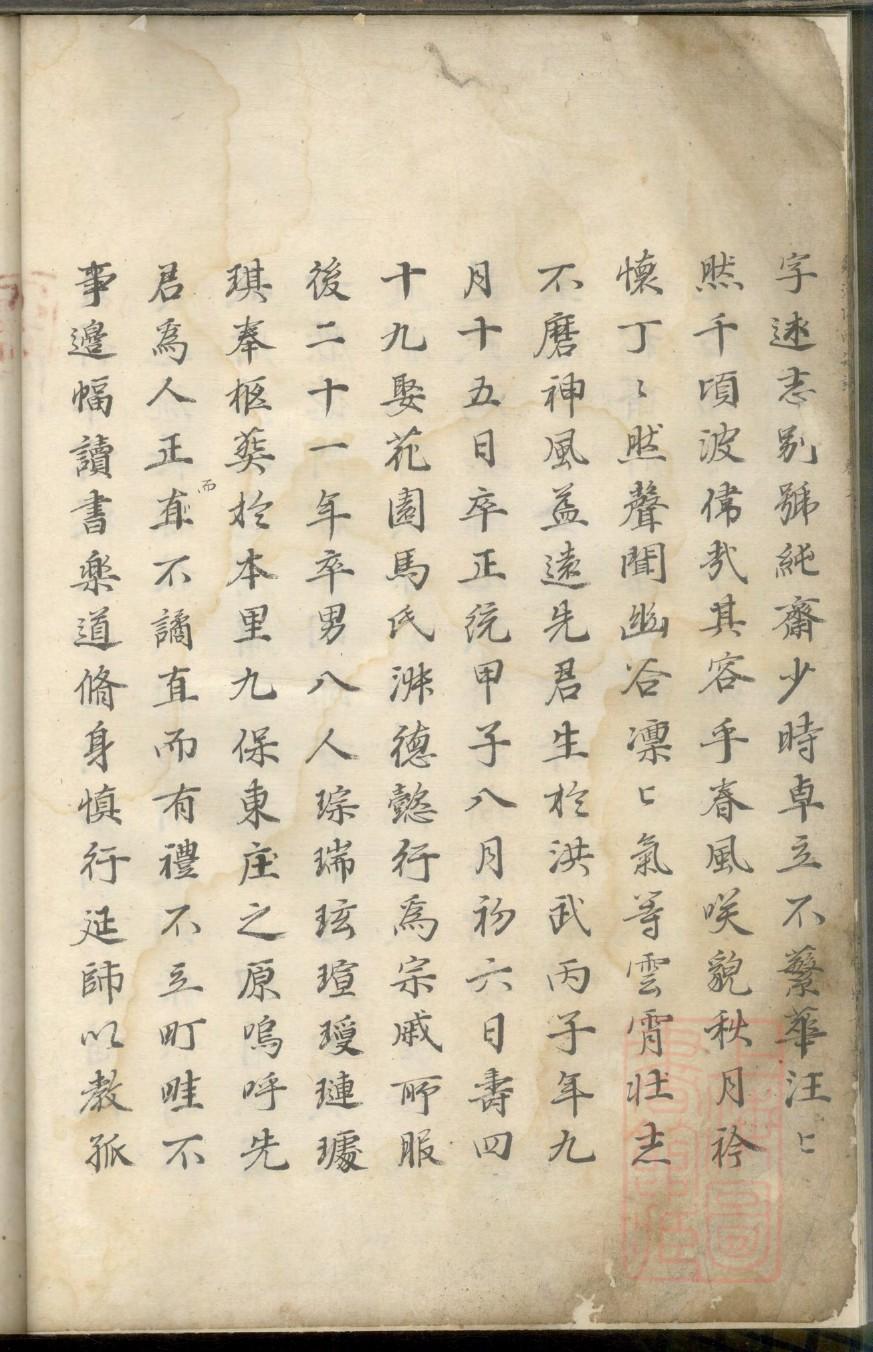 字逑志别號純齋少時卓立不蘩華汪〻
然千頃波偉哉其容乎春風咲貌秋月衿
懷丁〻然聲聞幽谷凛〻氣等雲霄壮志
不磨神風益遠先君生於洪武丙子年九
月十五日卒正统甲子八月初六日壽四
十九娶花園馬氏淋德懿行爲宗戚所服
後二十一年卒男八人琮瑞玹瑄璦璉璩
琪奉柩葬於本里九保東庄之原嗚呼先
君爲人正直而不譎直而有禮不立町畦不
事邊幅讀書楽道脩身慎行延師以教孤